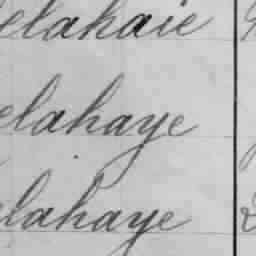 elahaie
elahaye
elahaye